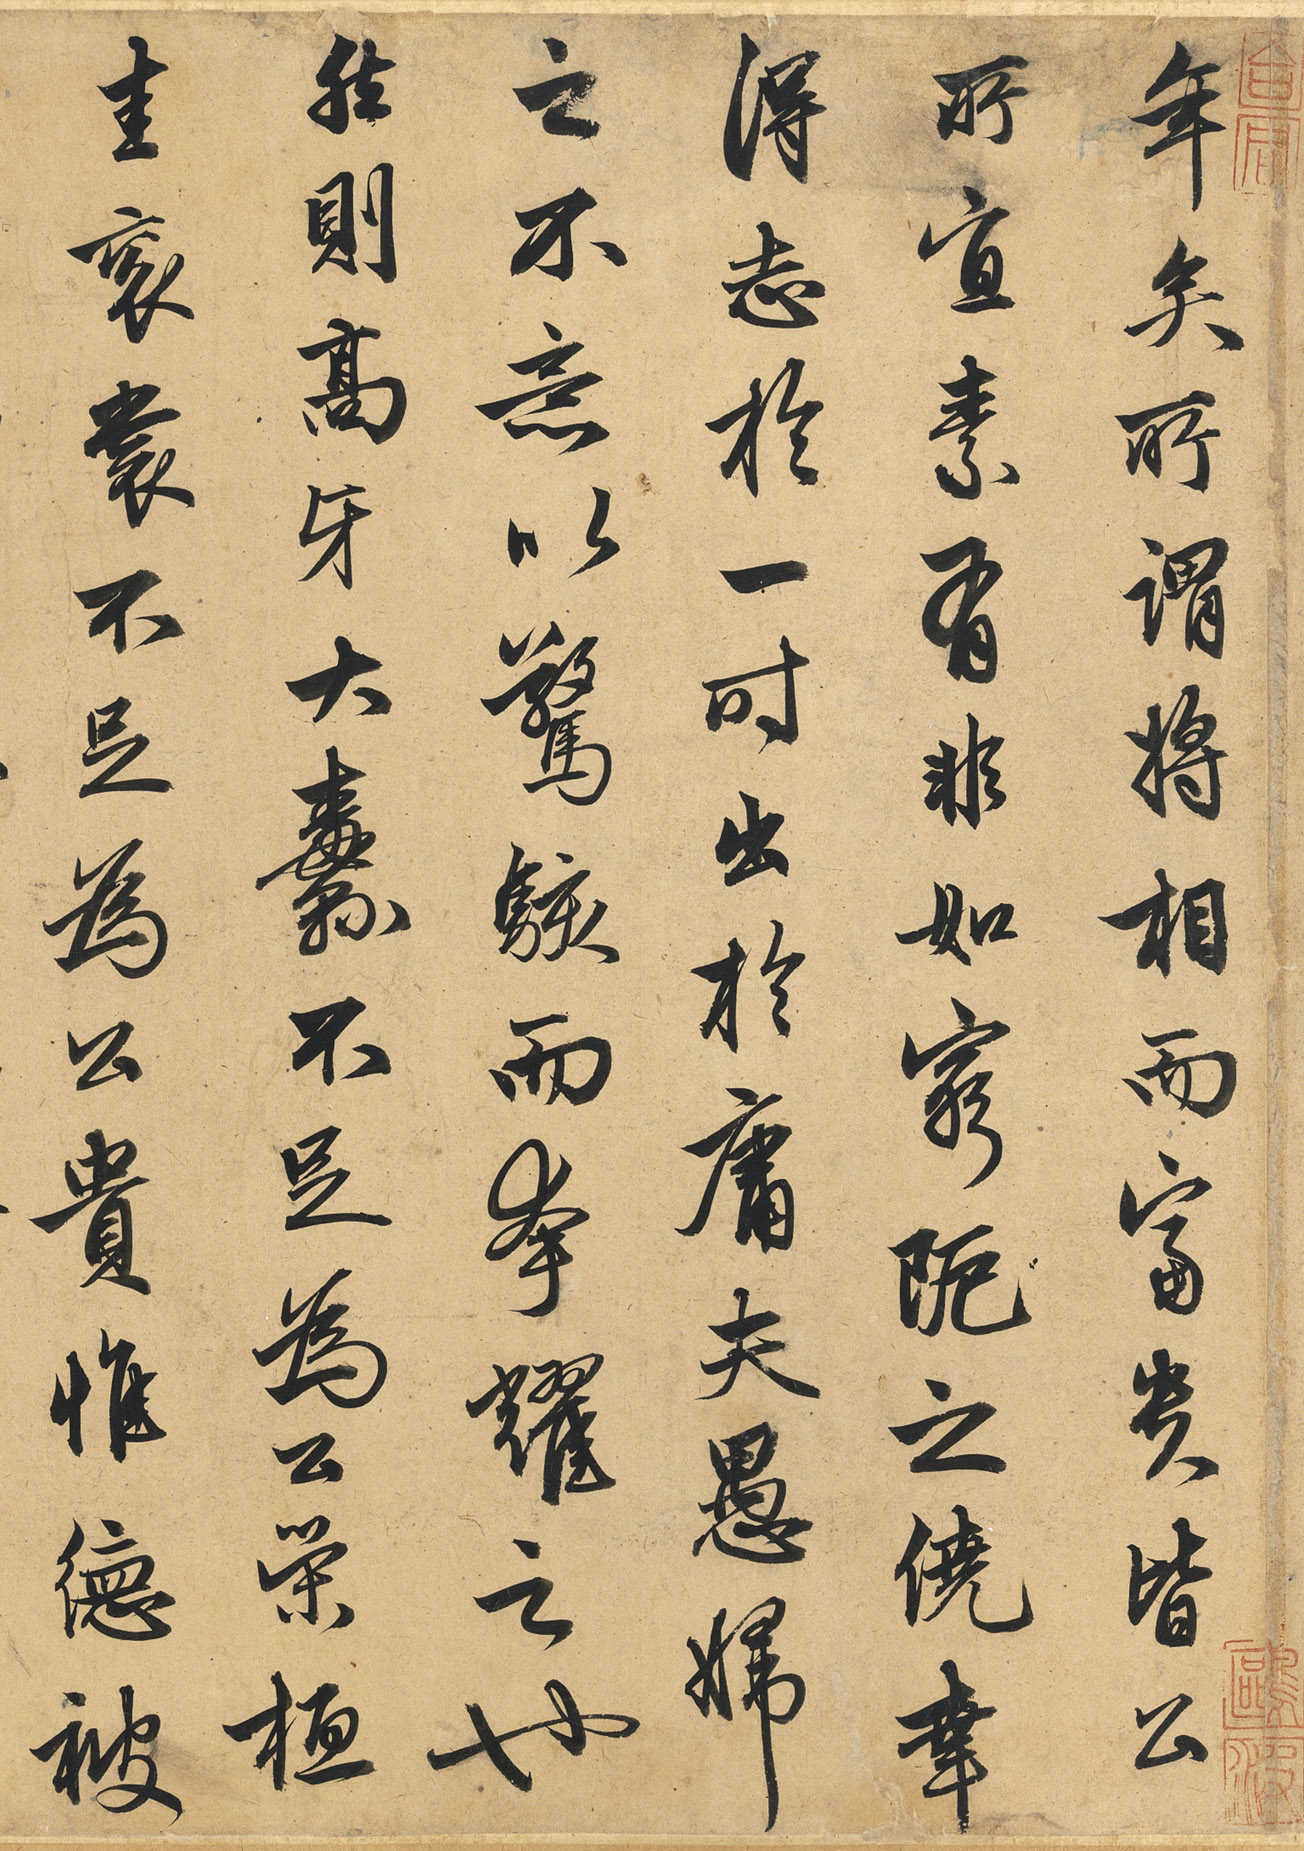 年矣所謂將相而富貴皆公
所宜素有非如窮阨之僥幸
得志於一時出於庸夫愚婦
之不意以驚駭而夸耀之也
然則高牙大纛不足為公榮桓
圭袞裳不足為公貴惟德被